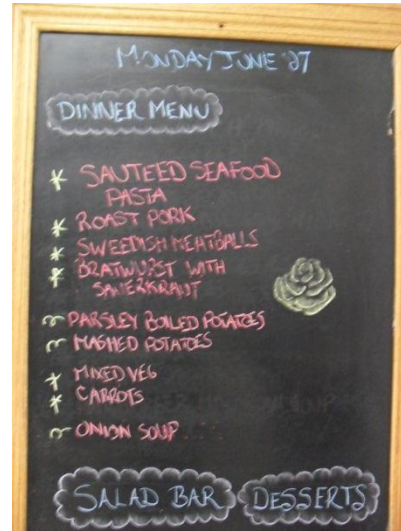 MONDAY JUNE 27
DINNER MENU
* SAUTEED SEAFOOD
PASTA
* ROAST PORK
* SWEEDISH MEATBALLS
* BRATWURST WITH
SAUERKRAUT
PARSLEY BOILED POTATOES
MASHED POTATOES
* MIXED VEG
* CARROTS
ONION SOUP....
SALAD BAR DESSERTS